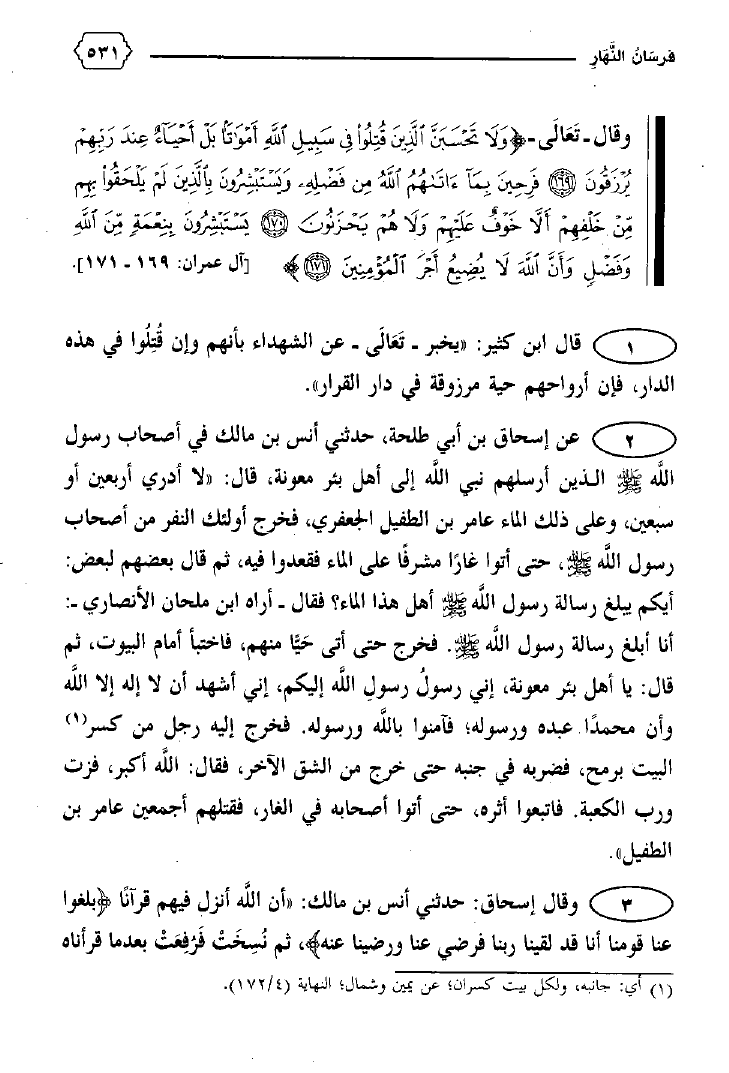 فرسَانُ النَّهَارِ ٥٣١
وقال ـ تَعَالَى ـ ﴿وَلَا تَحْسَبَنَّ ٱلَّذِينَ قُتِلُوا۟ فِى سَبِيلِ ٱللَّهِ أَمْوَٰتًۢا بَلْ أَحْيَآءٌ عِندَ رَبِّهِمْ
يُرْزَقُونَ ﴿١٦٩﴾ فَرِحِينَ بِمَآ ءَاتَىٰهُمُ ٱللَّهُ مِن فَضْلِهِۦ وَيَسْتَبْشِرُونَ بِٱلَّذِينَ لَمْ يَلْحَقُوا۟ بِهِم
مِّنْ خَلْفِهِمْ أَلَّا خَوْفٌ عَلَيْهِمْ وَلَا هُمْ يَحْزَنُونَ ﴿١٧٠﴾ يَسْتَبْشِرُونَ بِنِعْمَةٍ مِّنَ ٱللَّهِ
وَفَضْلٍ وَأَنَّ ٱللَّهَ لَا يُضِيعُ أَجْرَ ٱلْمُؤْمِنِينَ ﴿١٧١﴾﴾ [آل عمران: ١٦٩ ـ ١٧١].
١ قال ابن كثير: «يخبر ـ تَعَالَى ـ عن الشهداء بأنهم وإن قُتِلُوا في هذه
الدار، فإن أرواحهم حية مرزوقة في دار القرار».
٢ عن إسحاق بن أبي طلحة، حدثني أنس بن مالك في أصحاب رسول
اللَّه ﷺ الذين أرسلهم نبي اللَّه إلى أهل بئر معونة، قال: «لا أدري أربعين أو
سبعين، وعلى ذلك الماء عامر بن الطفيل الجعفري، فخرج أولئك النفر من أصحاب
رسول اللَّه ﷺ، حتى أتوا غارًا مشرفًا على الماء فقعدوا فيه، ثم قال بعضهم لبعض:
أيكم يبلغ رسالة رسول اللَّه ﷺ أهل هذا الماء؟ فقال ـ أراه ابن ملحان الأنصاري ـ:
أنا أبلغ رسالة رسول اللَّه ﷺ. فخرج حتى أتى حَيًّا منهم، فاختبأ أمام البيوت، ثم
قال: يا أهل بئر معونة، إني رسولُ رسولِ اللَّه إليكم، إني أشهد أن لا إله إلا اللَّه
وأن محمدًا عبده ورسوله؛ فآمنوا باللَّه ورسوله. فخرج إليه رجل من كسر(١)
البيت برمح، فضربه في جنبه حتى خرج من الشق الآخر، فقال: اللَّه أكبر، فزت
ورب الكعبة. فاتبعوا أثره، حتى أتوا أصحابه في الغار، فقتلهم أجمعين عامر بن
الطفيل».
٣ وقال إسحاق: حدثني أنس بن مالك: «أن اللَّه أنزل فيهم قرآنًا ﴿بلغوا
عنا قومنا أنا قد لقينا ربنا فرضي عنا ورضينا عنه﴾، ثم نُسِخَتْ فَرُفِعَتْ بعدما قرأناه
(١) أي: جانبه، ولكل بيت كسران؛ عن يمين وشمال؛ النهاية (١٧٢/٤).